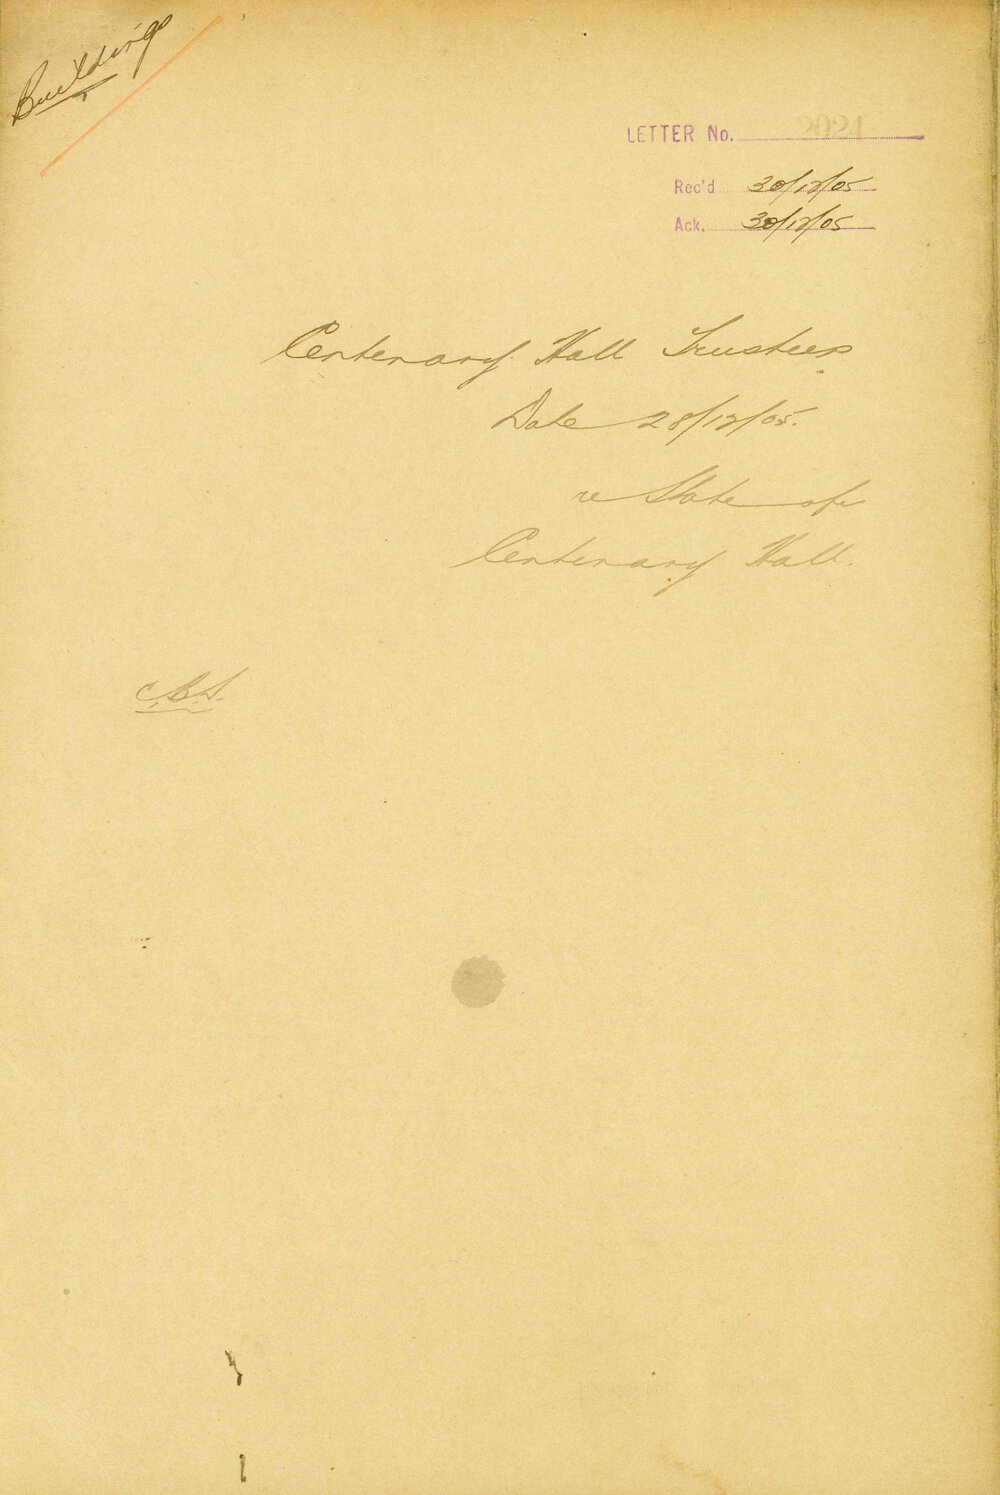 Buildings
LETTER No.
Rec'd 30/12/05
Ack. 30/12/05
Centenary Hall Trustees
Date 28/12/05.
re State of
Centenary Hall.